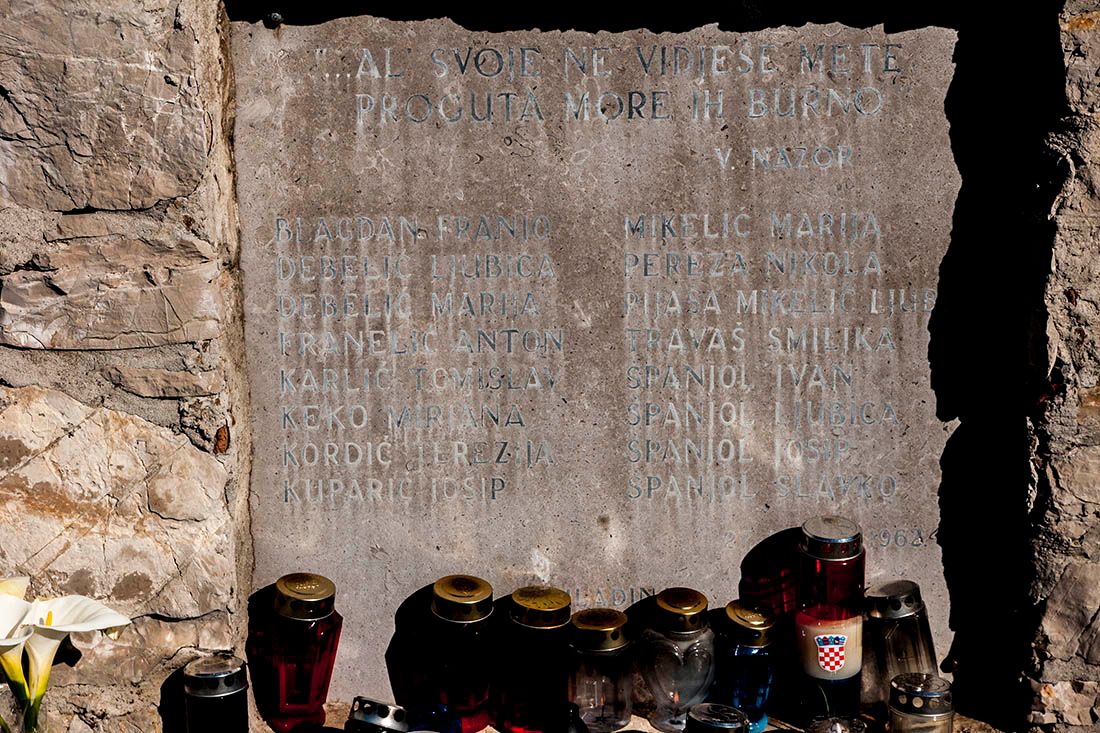 "...AL SVOJE NE VIDJEŠE METE
PROGUTA MORE IH BURNO
V. NAZOR
BLAGDAN FRANJO
DEBELIĆ LJUBICA
DEBELIĆ MARIJA
FRANELIĆ ANTON
KARLIĆ TOMISLAV
KEKO MIRJANA
KORDIĆ TEREZIJA
KUPARIĆ JOSIP
MIKELIĆ MARIJA
PEREZA NIKOLA
PIJASA MIKELIĆ LJUB
TRAVAŠ SMILIKA
ŠPANJOL IVAN
ŠPANJOL LJUBICA
ŠPANJOL JOSIP
ŠPANJOL SLAVKO